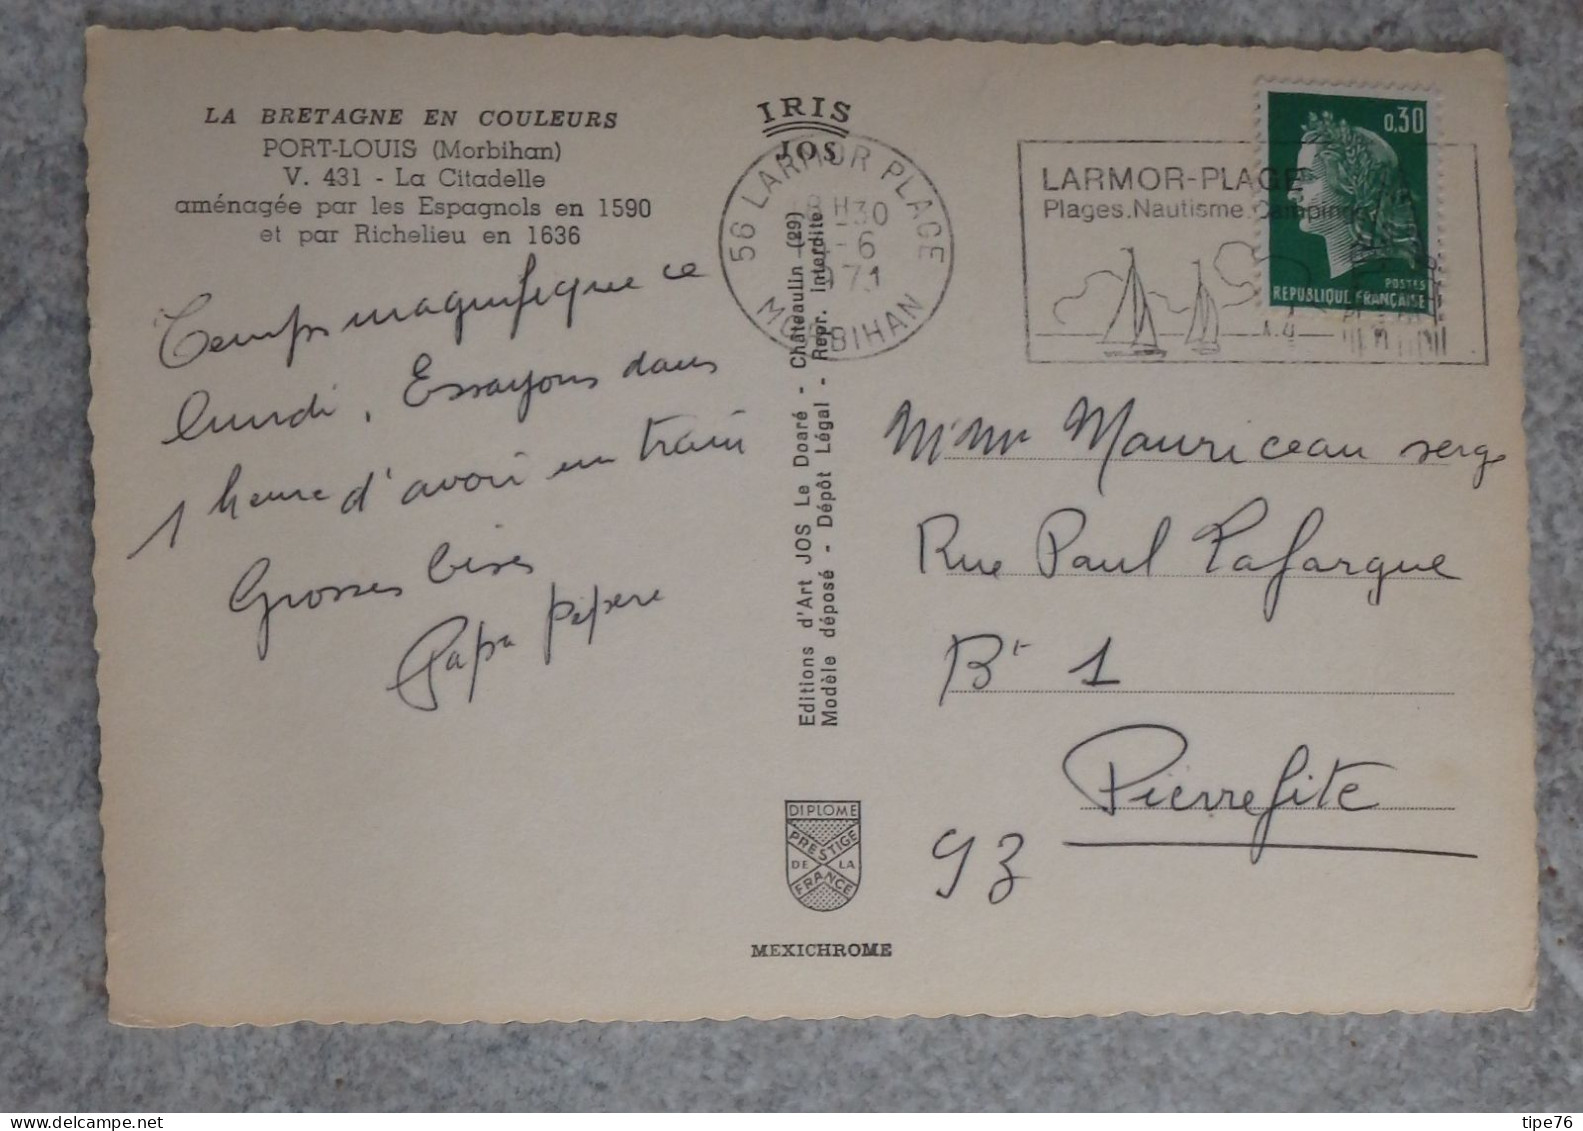 LA BRETAGNE EN COULEURS
PORT-LOUIS (Morbihan)
V. 431 - La Citadelle
aménagée par les Espagnols en 1590
et par Richelieu en 1636
Temps magnifique ce
lundi. Essayons dans
1 heure d'avoir un train
Grosses bises
Papa pepere
IRIS
JOS
Editions d'Art JOS Le Doaré - Châteaulin (29)
Modèle déposé - Dépôt Légal - Repr. interdite
DIPLOME
PRESTIGE
DE LA
FRANCE
MEXICHROME
56 LARMOR PLAGE
H 30
6
MORBIHAN
LARMOR-PLAGE
Plages.Nautisme.Camping
0,30
POSTES
REPUBLIQUE FRANÇAISE
M Mme Mauriceau serge
Rue Paul Lafargue
Bt 1
Pierrefite
93
delcampe.net
tipe76